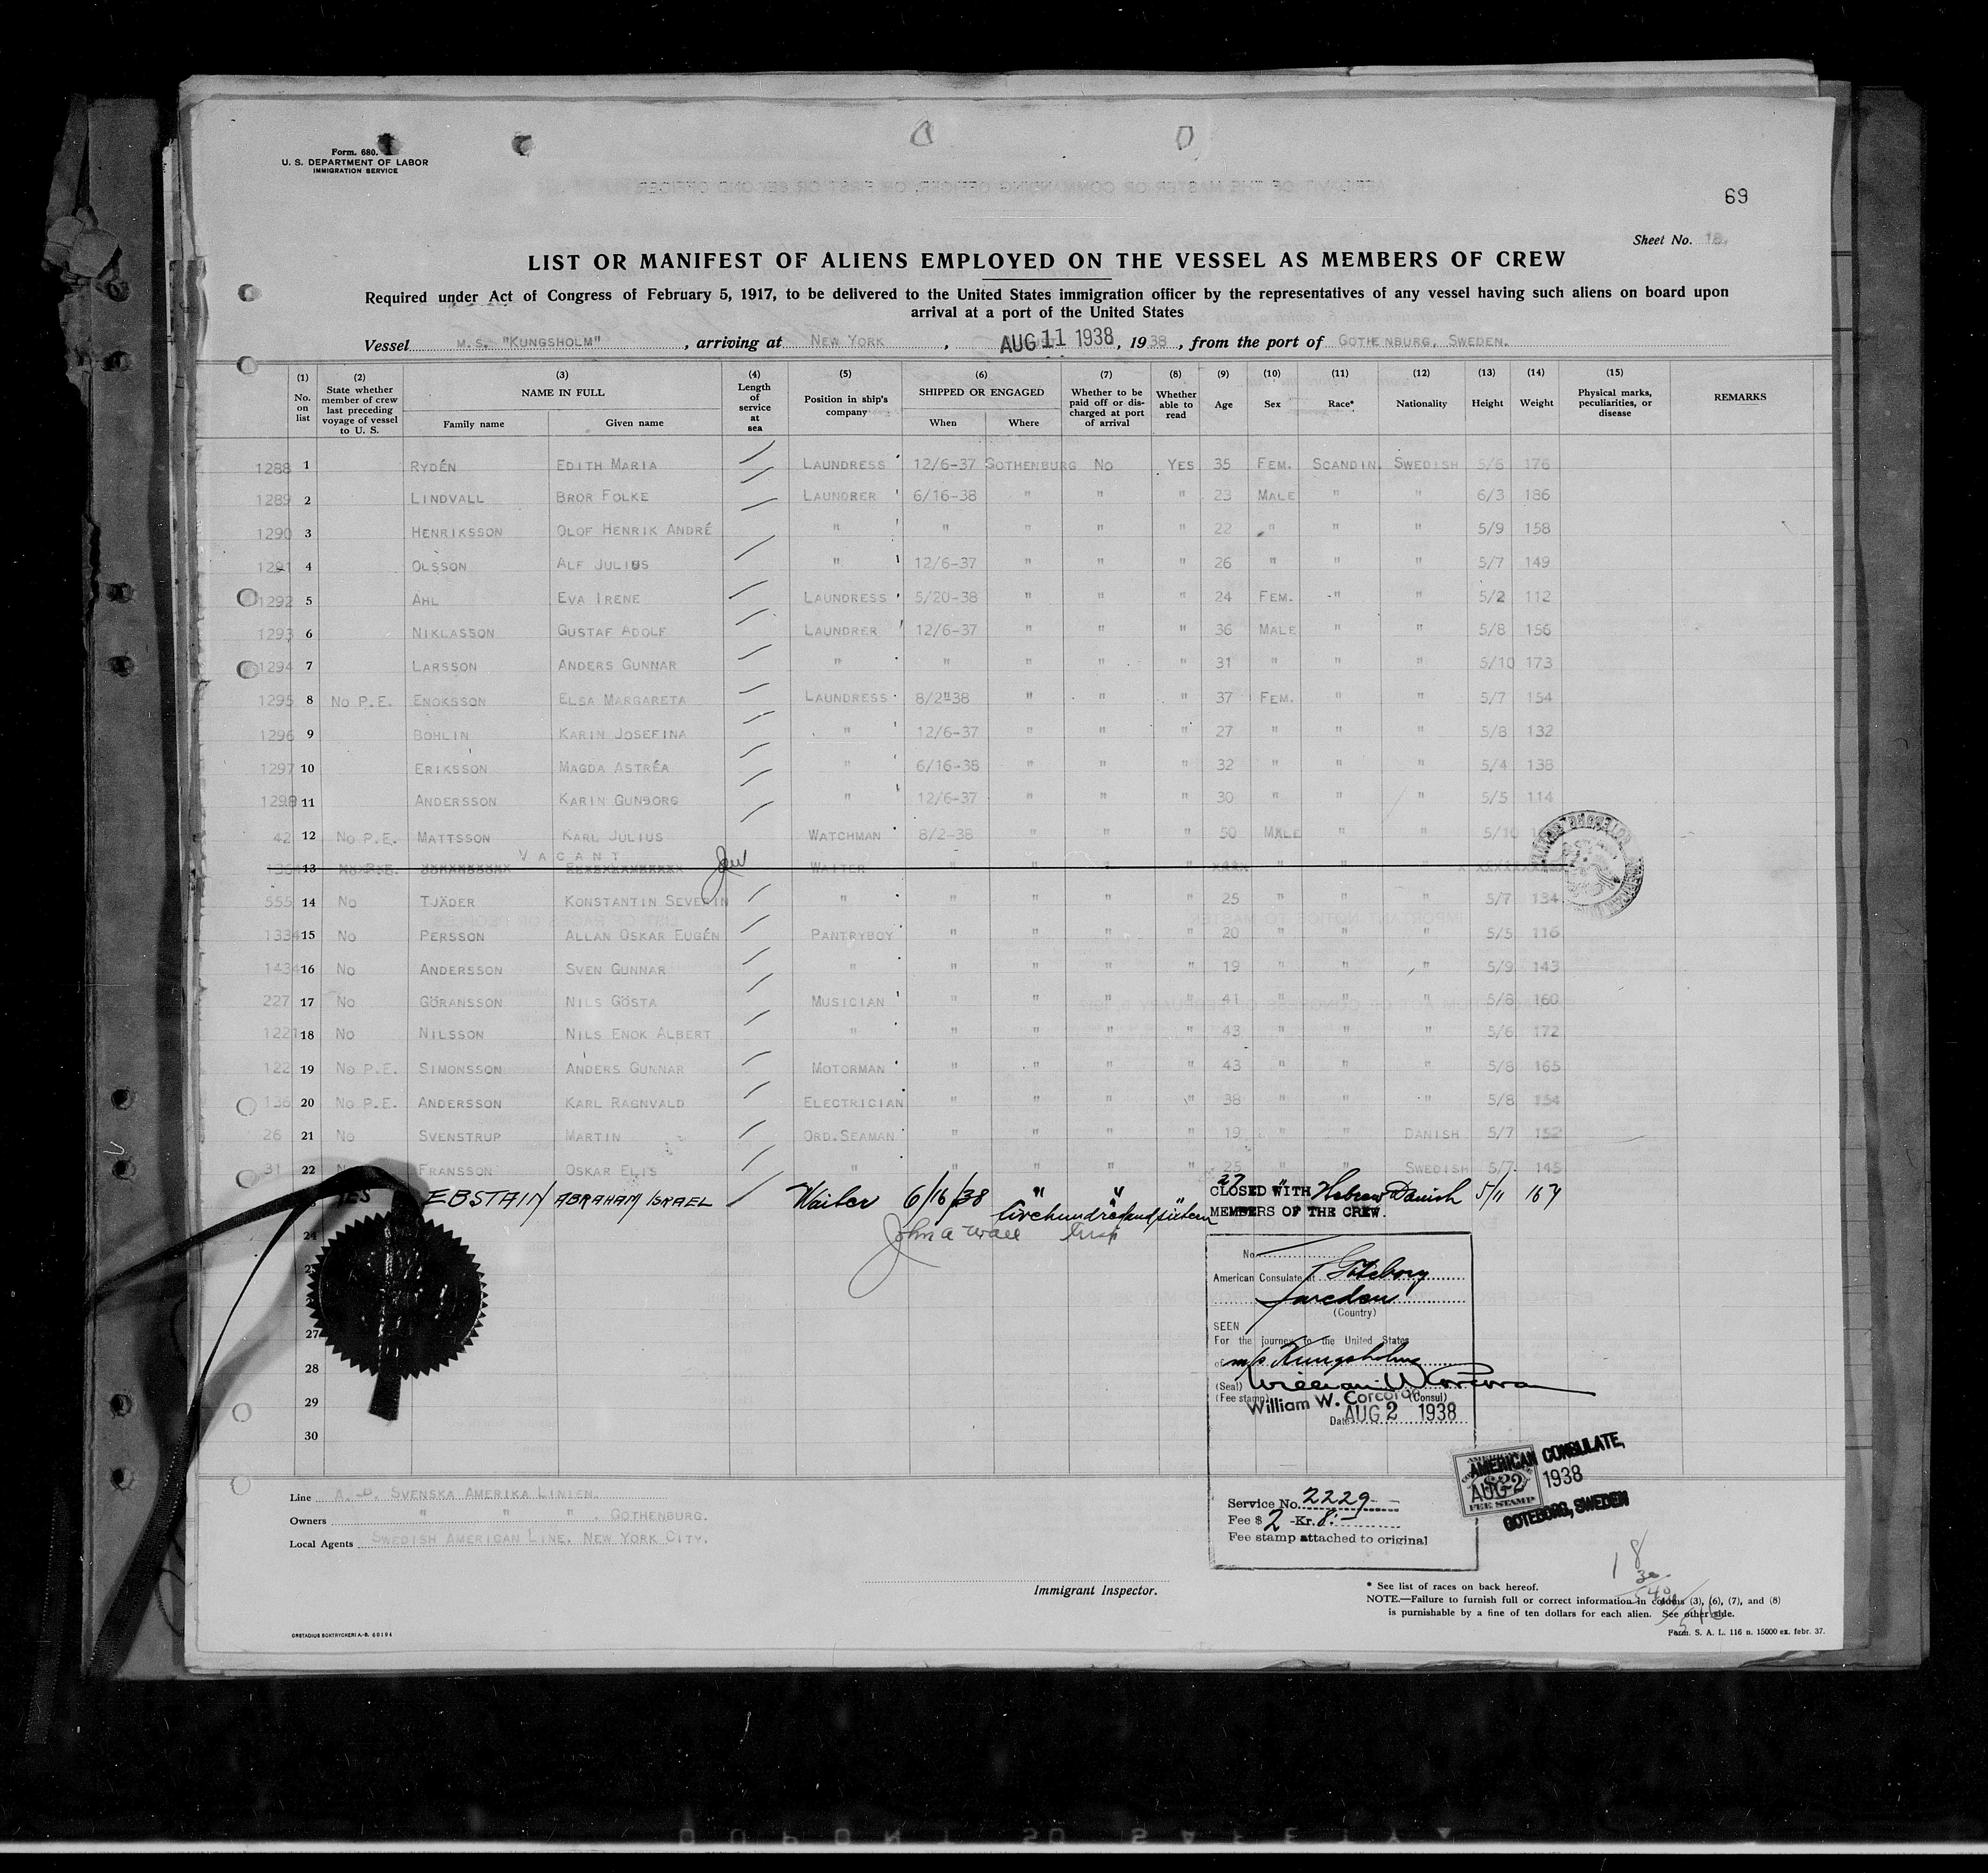 Form. 680.
U. S. DEPARTMENT OF LABOR
IMMIGRATION SERVICE
69
Sheet No. 18.
LIST OR MANIFEST OF ALIENS EMPLOYED ON THE VESSEL AS MEMBERS OF CREW
Required under Act of Congress of February 5, 1917, to be delivered to the United States immigration officer by the representatives of any vessel having such aliens on board upon
arrival at a port of the United States
Vessel M.S. "KUNGSHOLM", arriving at NEW YORK, AUG 11 1938, 1938, from the port of GOTHENBURG, SWEDEN.
(1) No. on list (2) State whether member of crew last preceding voyage of vessel to U. S. (3) NAME IN FULL Family name Given name (4) Length of service at sea (5) Position in ship's company (6) SHIPPED OR ENGAGED When Where (7) Whether to be paid off or discharged at port of arrival (8) Whether able to read (9) Age (10) Sex (11) Race* (12) Nationality (13) Height (14) Weight (15) Physical marks, peculiarities, or disease REMARKS
1288 1 RYDÉN EDITH MARIA LAUNDRESS 12/6-37 GOTHENBURG NO YES 35 FEM. SCANDIN. SWEDISH 5/6 176
1289 2 LINDVALL BROR FOLKE LAUNDRER 6/16-38 " " " 23 MALE " " 6/3 186
1290 3 HENRIKSSON OLOF HENRIK ANDRÉ " " " " " 22 " " " 5/9 158
1291 4 OLSSON ALF JULIUS " 12/6-37 " " " 26 " " " 5/7 149
1292 5 AHL EVA IRENE LAUNDRESS 5/20-38 " " " 24 FEM. " " 5/2 112
1293 6 NIKLASSON GUSTAF ADOLF LAUNDRER 12/6-37 " " " 36 MALE " " 5/8 156
1294 7 LARSSON ANDERS GUNNAR " " " " " 31 " " " 5/10 173
1295 8 NO P.E. ENOKSSON ELSA MARGARETA LAUNDRESS 8/2-38 " " " 37 FEM. " " 5/7 154
1296 9 BOHLIN KARIN JOSEFINA " 12/6-37 " " " 27 " " " 5/8 132
1297 10 ERIKSSON MAGDA ASTRÉA " 6/16-38 " " " 32 " " " 5/4 138
1298 11 ANDERSSON KARIN GUNBORG " 12/6-37 " " " 30 " " " 5/5 114
42 12 NO P.E. MATTSSON KARL JULIUS WATCHMAN 8/2-38 " " " 50 MALE " " 5/10
13 VACANT WAITER " " " " " " "
555 14 NO TJÄDER KONSTANTIN SEVERIN " " " " " 25 " " " 5/7 134
1334 15 NO PERSSON ALLAN OSKAR EUGÉN PANTRYBOY " " " " 20 " " " 5/5 116
1434 16 NO ANDERSSON SVEN GUNNAR " " " " " 19 " " " 5/9 143
227 17 NO GÖRANSSON NILS GÖSTA MUSICIAN " " " " 41 " " " 5/8 160
1221 18 NO NILSSON NILS ENOK ALBERT " " " " " 43 " " " 5/6 172
122 19 NO P.E. SIMONSSON ANDERS GUNNAR MOTORMAN " " " " 43 " " " 5/8 165
136 20 NO P.E. ANDERSSON KARL RAGNVALD ELECTRICIAN " " " " 38 " " " 5/8 154
26 21 NO SVENSTRUP MARTIN ORD. SEAMAN " " " " 19 " " DANISH 5/7 152
31 22 FRANSSON OSKAR ELIS " " " " " 25 SWEDISH 5/7 145
YES EBSTAIN ABRAHAM ISRAEL Waiter 6/16/38 " " " 27 " Hebrew Danish 5/11 167
CLOSED WITH
fivehundredandsixteen
MEMBERS OF THE CREW.
24 John A Wall
27
28
29
30
No.
American Consulate at Göteborg
Sweden
(Country)
SEEN
For the journey to the United States
of m/s Kungsholm
(Seal) William W Corcoran
(Fee stamp) William W. Corcoran (Consul)
Date AUG 2 1938
Service No. 2229
Fee $ 2 -Kr. 8:-
Fee stamp attached to original
AMERICAN CONSULATE,
AUG 2 1938
GOTEBORG, SWEDEN
FEE STAMP
Line A.-B. SVENSKA AMERIKA LINIEN.
Owners " " ", GOTHENBURG.
Local Agents SWEDISH AMERICAN LINE. NEW YORK CITY.
Immigrant Inspector.
* See list of races on back hereof.
NOTE.—Failure to furnish full or correct information in columns (3), (6), (7), and (8)
is purnishable by a fine of ten dollars for each alien. See other side.
Form. S. A. L. 116 n. 15000 ex. febr. 37.
ORSTADIUS BOKTRYCKERI A.-B. 60194
DUPONT SAFETY